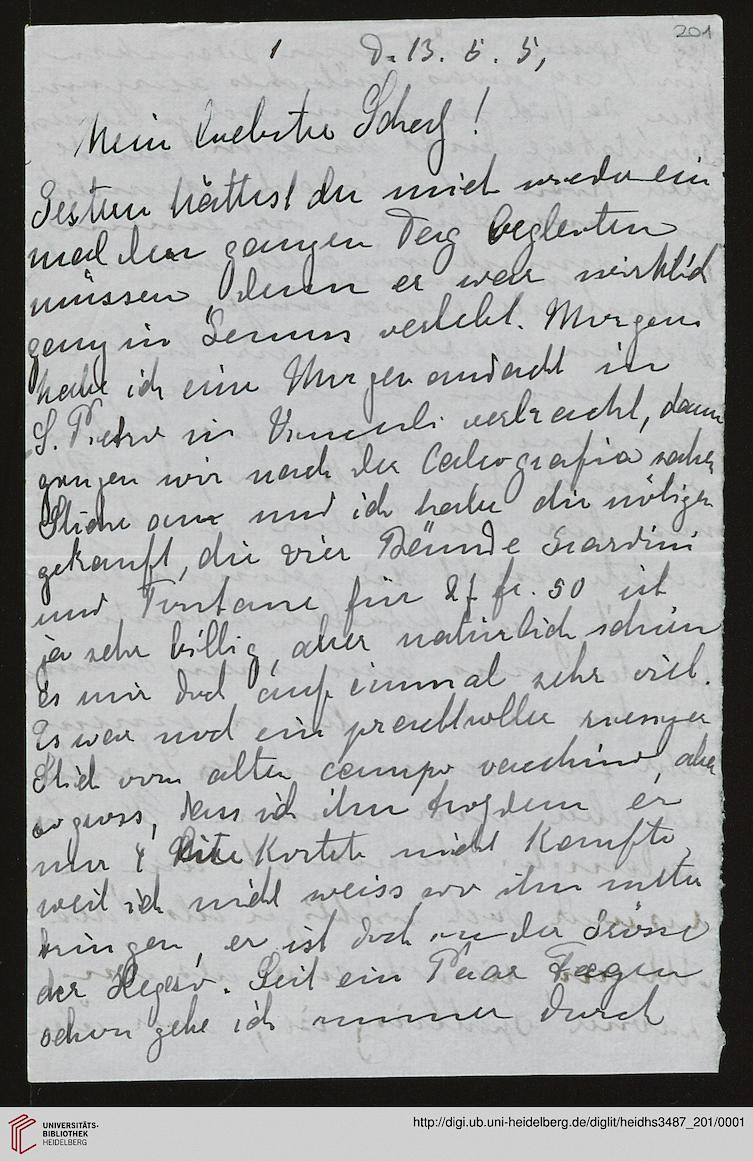 201
1 d. 13. 5. 5,
Mein liebster Scherf!
Gestern hättest du mich wieder ein
mal den ganzen Tag begleiten
müssen denn er war wirklich
ganz in Genuss verlebt. Morgens
habe ich eine Morgenandacht in
S. Pietro in Vincoli verbracht, dann
gingen wir nach der Calcografia sahen
Stiche an und ich habe die nötigen
gekauft, die vier Bände Giardini
und Fontane für 27 fr. 50 ist
ja sehr billig, aber natürlich schien
es mir doch auf einmal sehr viel.
Es war noch ein prachtvoller riesiger
Stich vom alten campo vacchino, aber
so gross, dass ich ihn trotzdem er
nur 4 Lire kostete nicht kaufte,
weil ich nicht weiss wo ihn unter
bringen, er ist doch in der Grösse
der Hegeso. Seit ein Paar Tagen
schon gehe ich immer durch
UNIVERSITÄTS-
BIBLIOTHEK
HEIDELBERG
http://digi.ub.uni-heidelberg.de/diglit/heidhs3487_201/0001